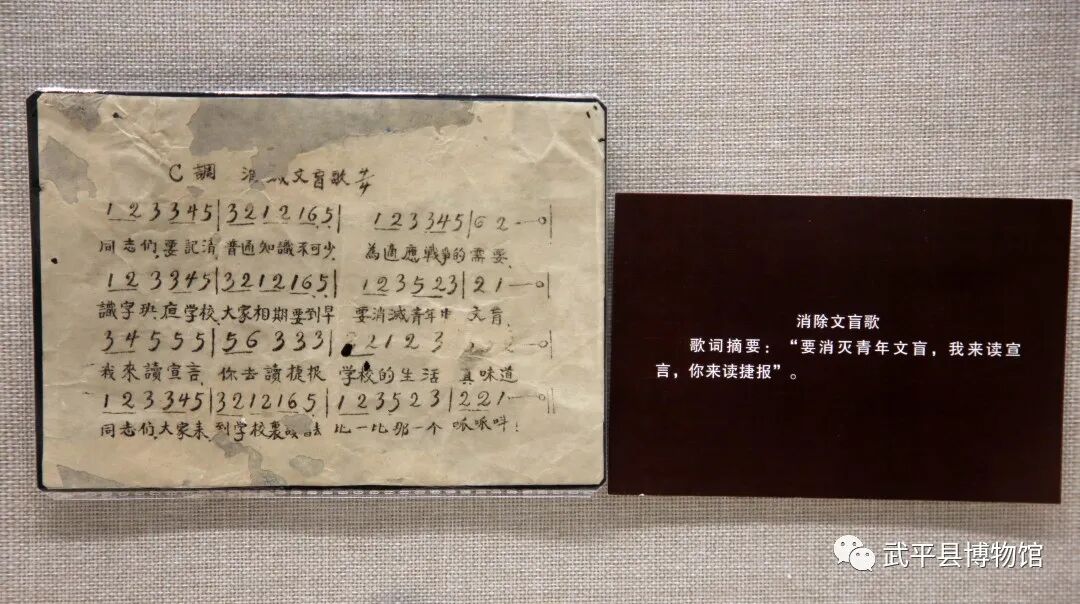 C調 消 文盲歌
1 2 3 3 4 5 | 3 2 1 2 1 6 5 | 1 2 3 3 4 5 | 6 2 — 0 |
同志們要記清 普通知識不可少 為適應戰爭的需要
1 2 3 3 4 5 | 3 2 1 2 1 6 5 | 1 2 3 5 2 3 | 2 1 — 0 |
識字班夜学校大家相期要到早 要消滅青年中 文盲
3 4 5 5 5 | 5 6 3 3 3 | 2 1 2 3 2 — 0 |
我來讀宣言 你去讀捷报 学校的生活 真味道
1 2 3 3 4 5 | 3 2 1 2 1 6 5 | 1 2 3 5 2 3 | 2 2 1 — 0 ||
同志們大家来到学校裏 去 比一比那一个 呱呱叫！
消除文盲歌
歌词摘要：“要消灭青年文盲，我来读宣
言，你来读捷报”。
武平县博物馆